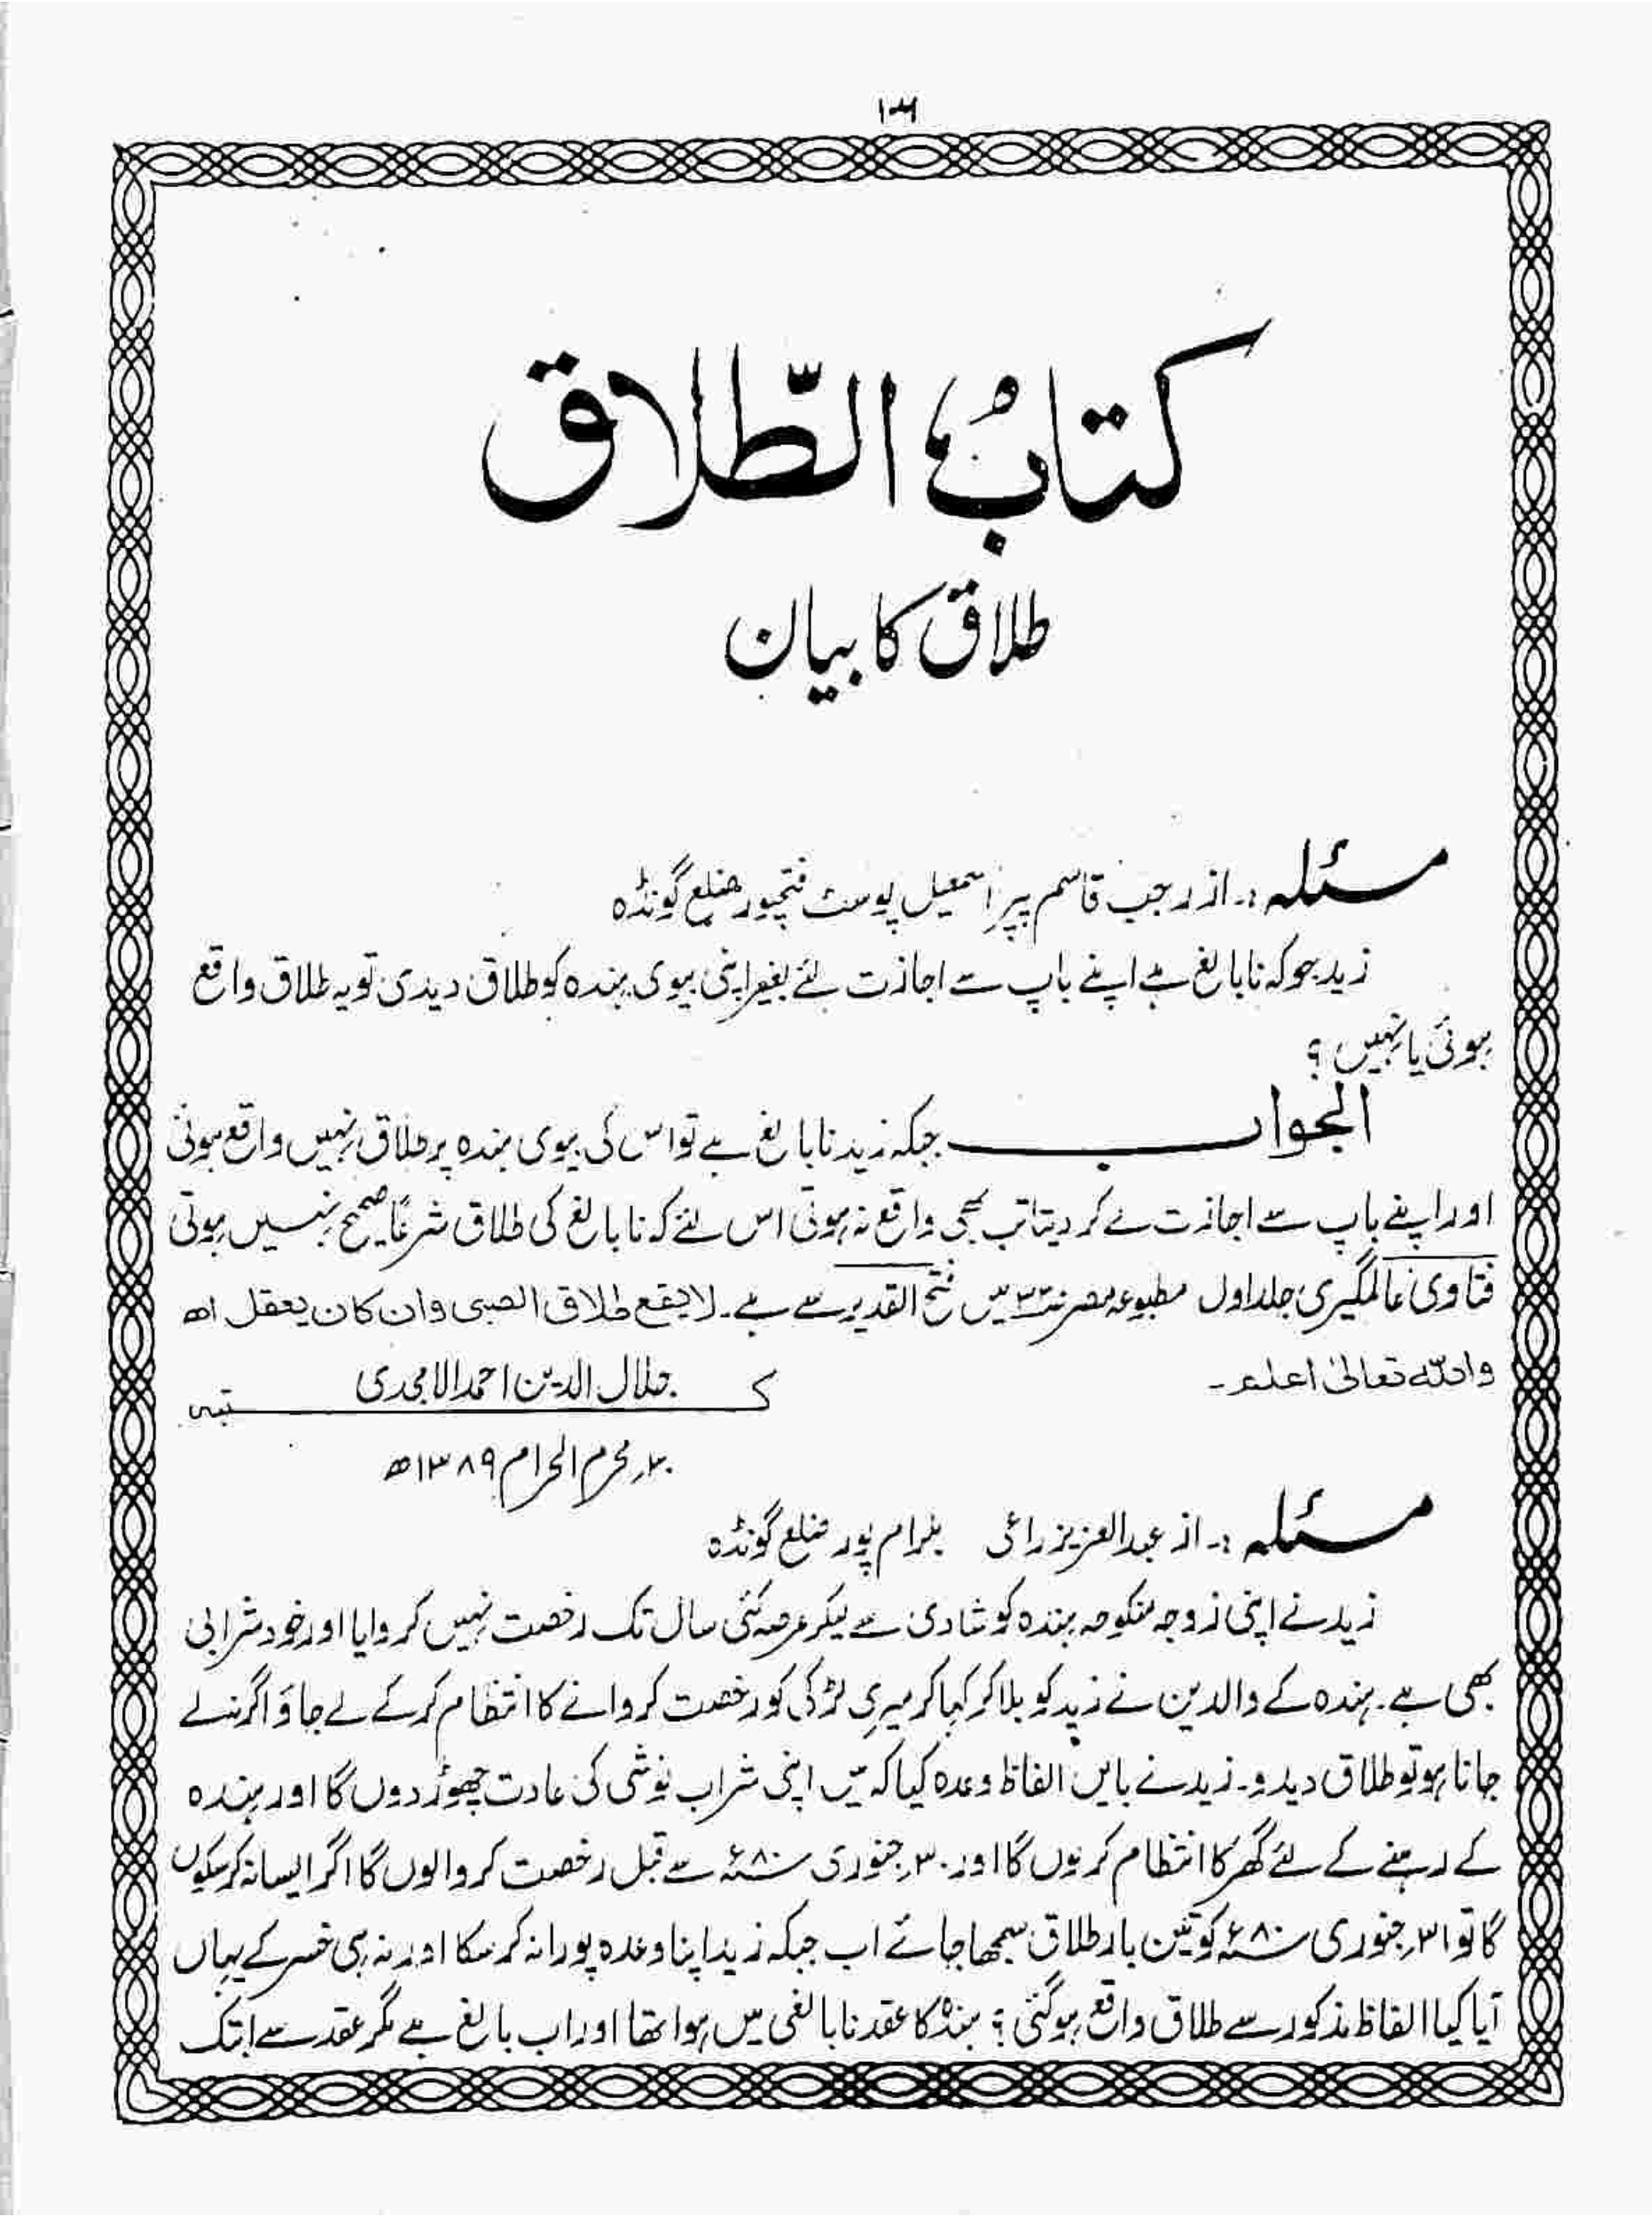 كتابُ الطّلاق
طلاق کا بیان
مسئلہ :۔ از رجب قاسم پیر اسمعیل پوسٹ فتحپور ضلع گونڈہ
زید جو کہ نابالغ ہے اپنے باپ سے اجازت لئے بغیر اپنی بیوی ہندہ کو طلاق دیدی تو یہ طلاق واقع
ہوئی یا نہیں ؟
الجواب جبکہ زید نابالغ ہے تو اس کی بیوی ہندہ پر طلاق نہیں واقع ہوئی
اور اپنے باپ سے اجازت لے کر دیتا تب بھی واقع نہ ہوتی اس لئے کہ نابالغ کی طلاق شرعًا صحیح نہیں ہوتی
فتاوی عالمگیری جلد اول مطبوعہ مصر میں فتح القدیر سے ہے۔ لا یقع طلاق الصبی وان کان یعقل اھ
واللہ تعالیٰ اعلم۔
کتبہ جلال الدین احمد الامجدی
محرم الحرام ۱۳۸۹ھ
مسئلہ :۔ از عبدالعزیز راعی بلرام پور ضلع گونڈہ
زید نے اپنی زوجہ منکوحہ ہندہ کو شادی سے لیکر عرصہ کئی سال تک رخصت نہیں کروایا اور خود شرابی
بھی ہے۔ ہندہ کے والدین نے زید کو بلا کر کہا کہ میری لڑکی کو رخصت کروانے کا انتظام کرکے لے جاؤ اگر نہ لے
جانا ہو تو طلاق دیدو۔ زید نے بایں الفاظ وعدہ کیا کہ میں اپنی شراب نوشی کی عادت چھوڑ دوں گا اور ہندہ
کے رہنے کے لئے گھر کا انتظام کرلوں گا اور ۳۰؍ جنوری ۸۰ء سے قبل رخصت کروا لوں گا اگر ایسا نہ کر سکوں
گا تو ۳۱؍ جنوری ۸۰ء کو تین بار طلاق سمجھا جائے اب جبکہ زید اپنا وعدہ پورا نہ کر سکا اور نہ ہی خسر کے یہاں
آیا کیا الفاظ مذکور سے طلاق واقع ہوگئی ؟ ہندہ کا عقد نابالغی میں ہوا تھا اور اب بالغ ہے مگر عقد سے ابتک